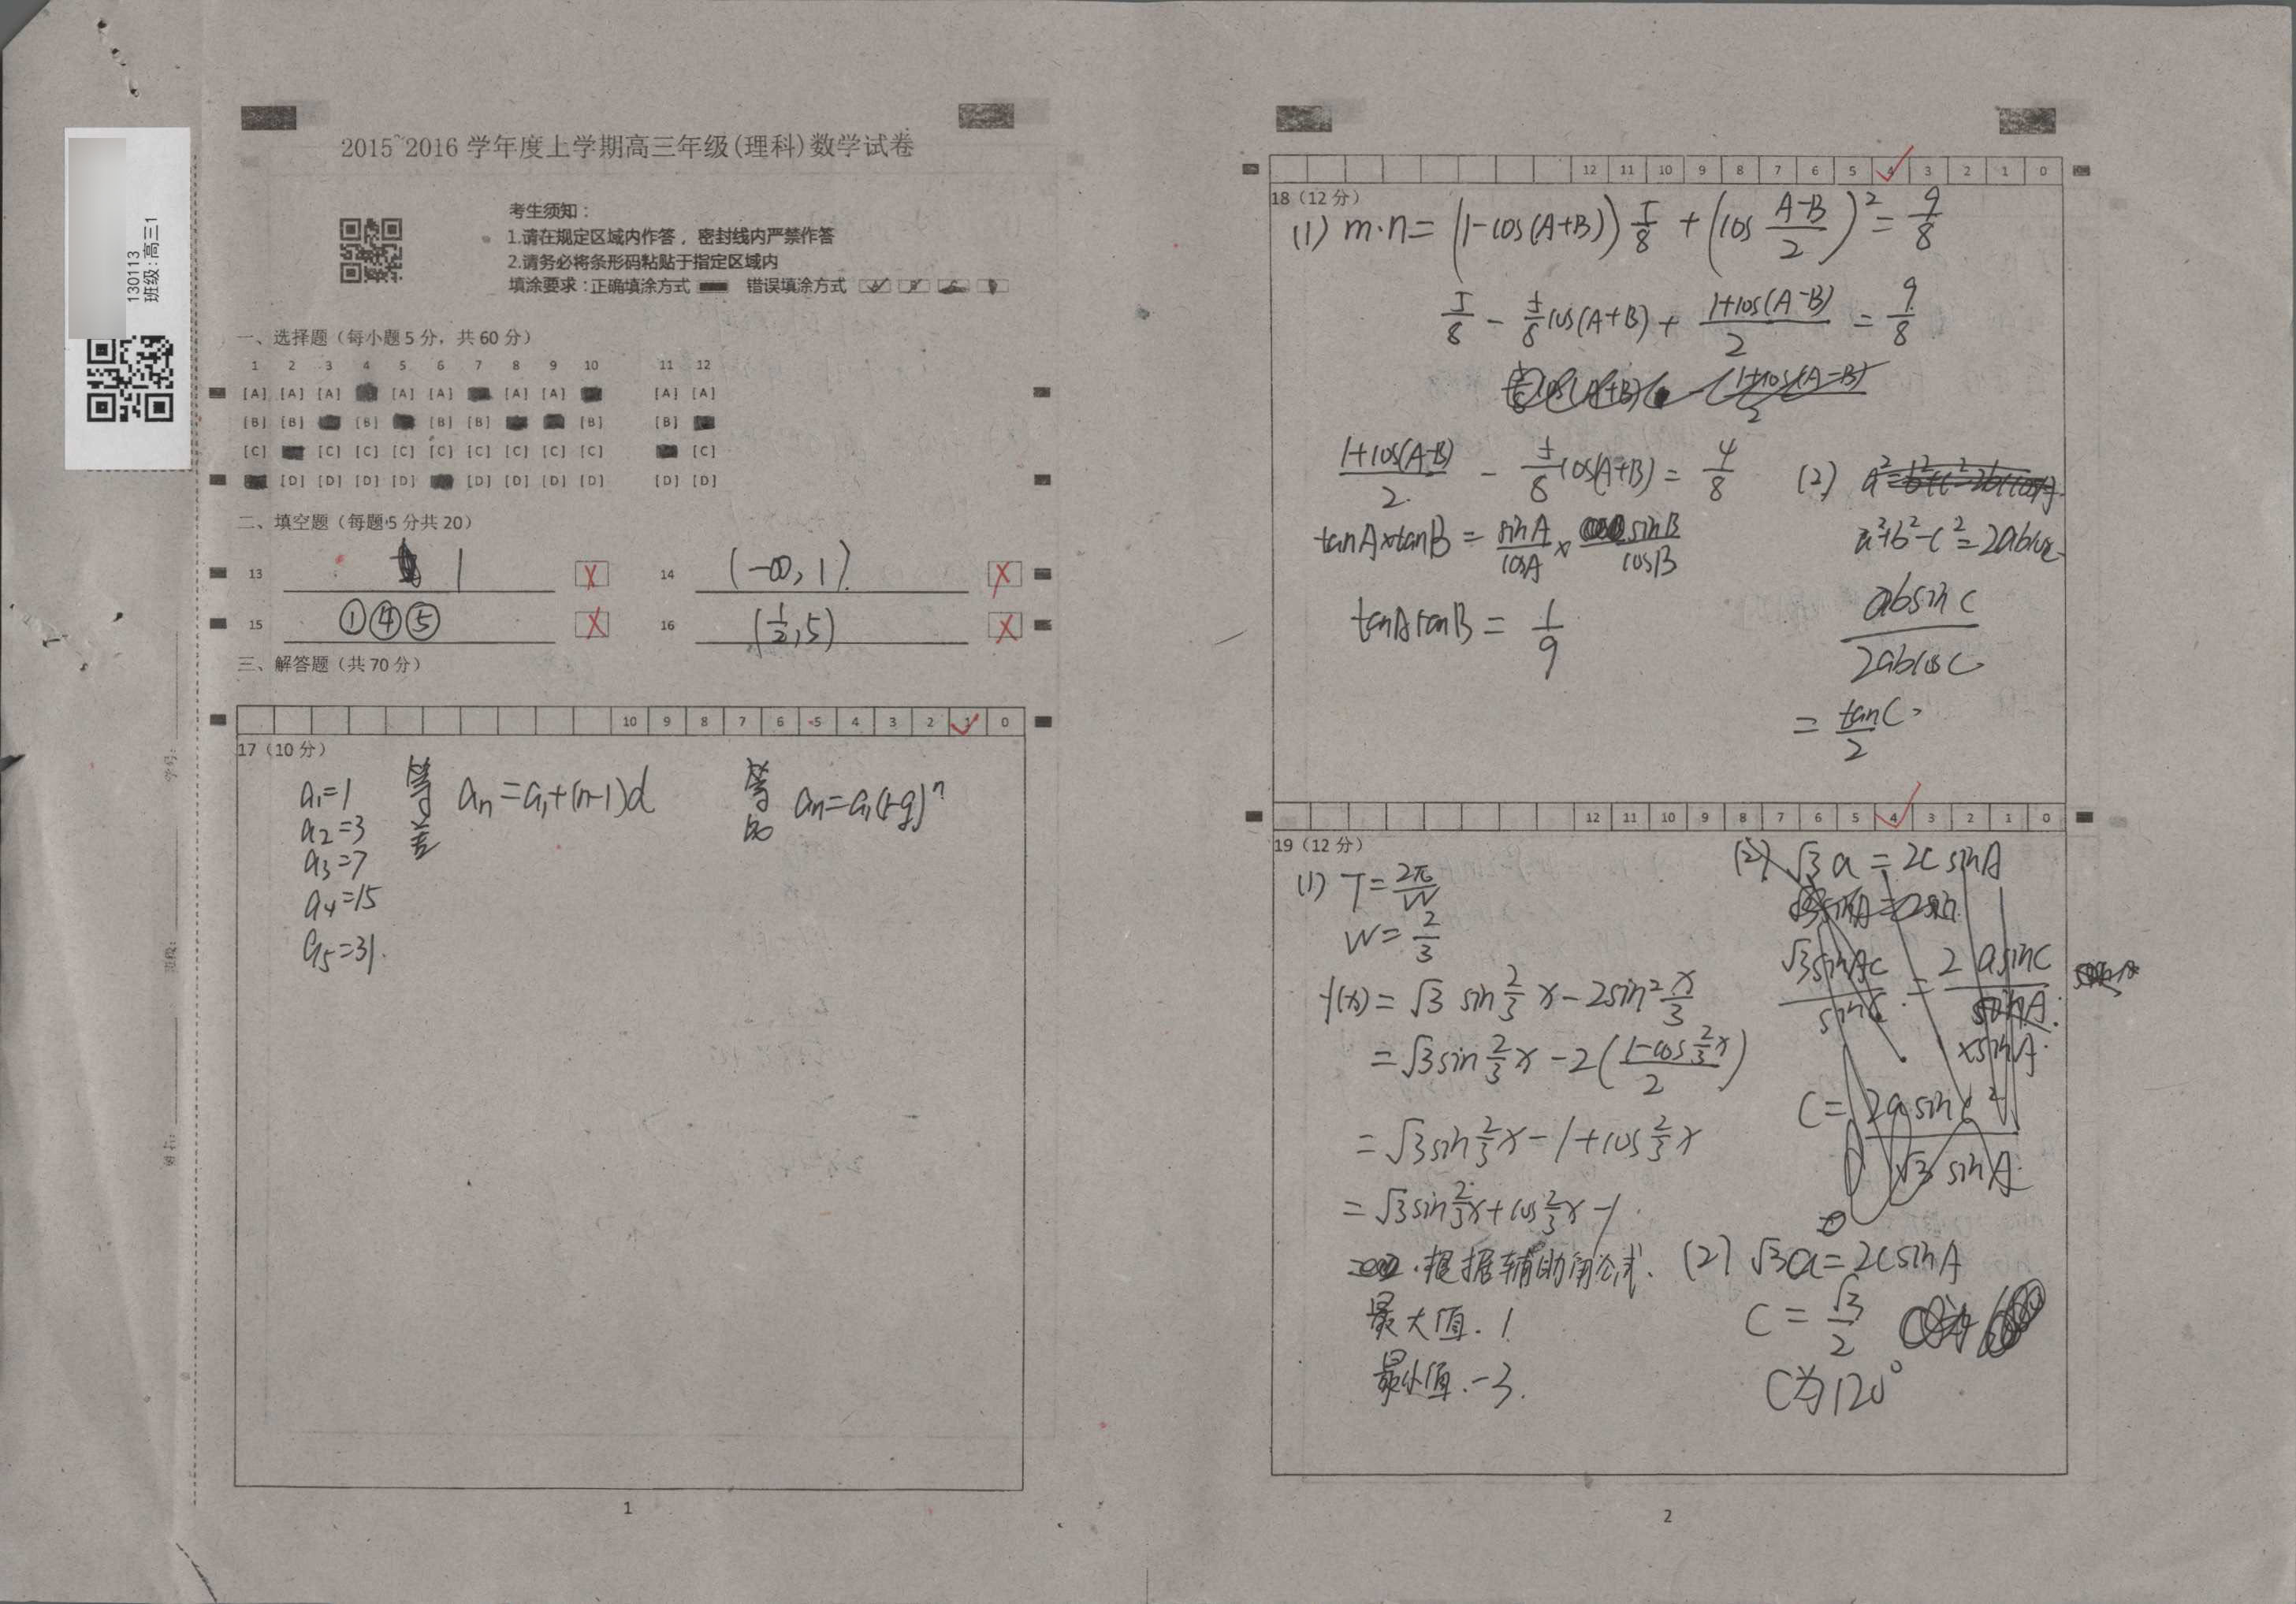 130113
班级:高三1
2015~2016 学年度上学期高三年级(理科)数学试卷
考生须知：
1.请在规定区域内作答，密封线内严禁作答
2.请务必将条形码粘贴于指定区域内
填涂要求：正确填涂方式 错误填涂方式
一、选择题（每小题 5 分，共 60 分）
1 2 3 4 5 6 7 8 9 10 11 12
[A] [A] [A] [A] [A] [A] [A] [A] [A]
[B] [B] [B] [B] [B] [B] [B]
[C] [C] [C] [C] [C] [C] [C] [C] [C] [C]
[D] [D] [D] [D] [D] [D] [D] [D] [D] [D]
二、填空题（每题 5 分共 20）
13 1 X 14 (-∞,1). X
15 ①④⑤ X 16 (1/2,5) X
三、解答题（共 70 分）
10 9 8 7 6 5 4 3 2 1 0
17（10 分）
a₁=1 等差 aₙ=a₁+(n-1)d 等比 aₙ=a₁(1-q)ⁿ
a₂=3
a₃=7
a₄=15
a₅=31.
学号:
班级:
姓名:
1
12 11 10 9 8 7 6 5 4 3 2 1 0
18（12 分）
(1) m·n= (1-cos(A+B)) 5/8 + (cos (A-B)/2)² = 9/8
5/8 - 5/8 cos(A+B) + (1+cos(A-B))/2 = 9/8
(1+cos(A-B))/2 - 5/8 cos(A+B) = 4/8
tanA×tanB = sinA/cosA × sinB/cosB
tanAtanB = 1/9
(2) a²=b²+c²-2bccosA
a²+b²-c²=2abcosc
absinC
2abcosC
= tanC/2
12 11 10 9 8 7 6 5 4 3 2 1 0
19（12 分）
(1) T=2π/W
W=2/3
f(x)=√3 sin 2/3 x-2sin² x/3
=√3sin 2/3 x-2((1-cos 2/3 x)/2)
=√3sin 2/3 x-1+cos 2/3 x
=√3sin 2/3 x+cos 2/3 x-1
根据辅助角公式.
最大值.1
最小值.-3.
(2) √3a=2csinA
√3sinAc/sinC = 2asinC/sinA
×sinA
C= 2asinC²/√3sinA
(2) √3a=2csinA
C=√3/2
C为120°
2